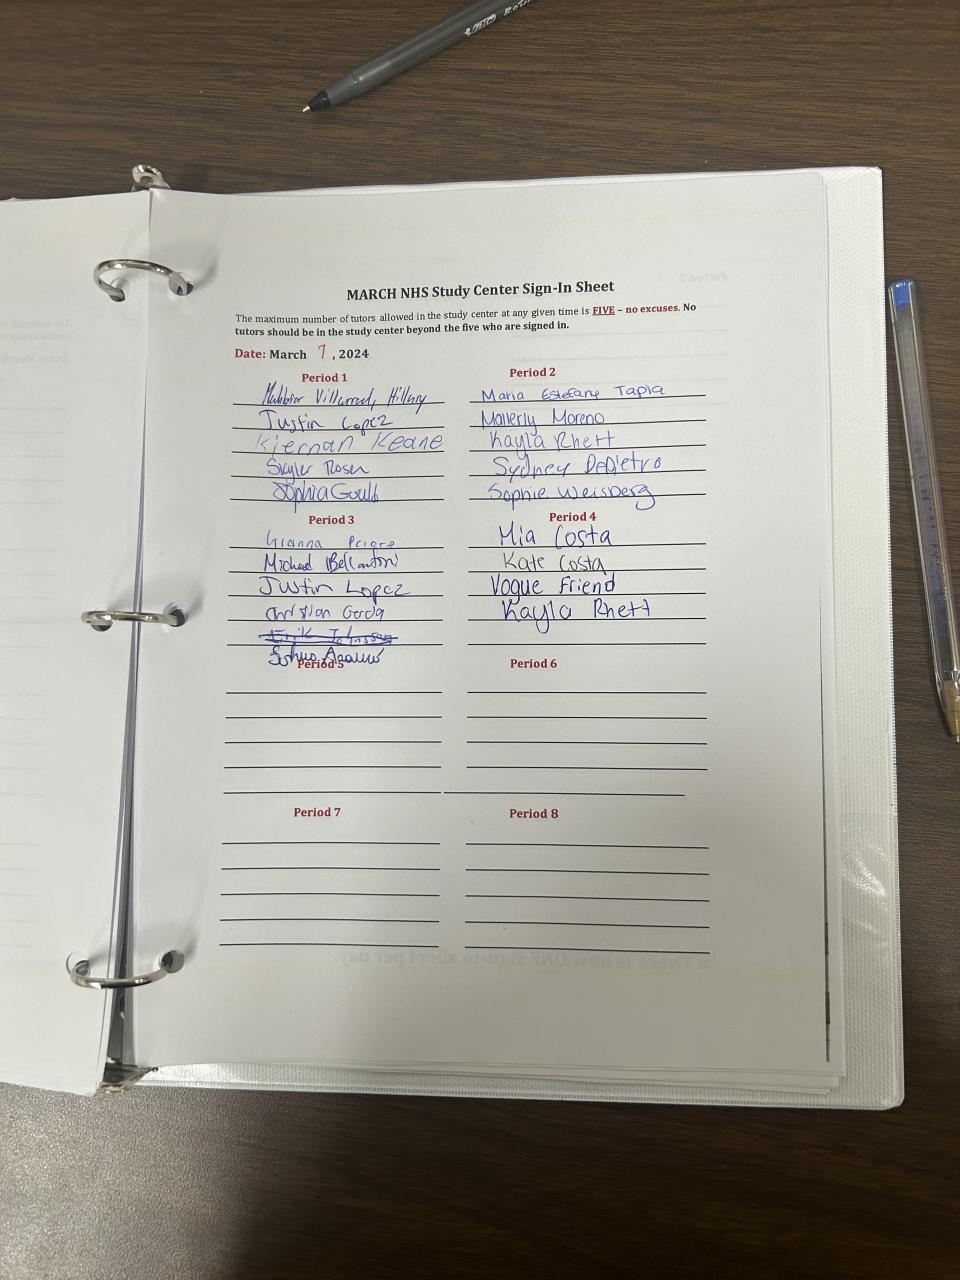 BIC
MARCH NHS Study Center Sign-In Sheet
The maximum number of tutors allowed in the study center at any given time is FIVE – no excuses. No
tutors should be in the study center beyond the five who are signed in.
Date: March 7, 2024
Period 1
Villarreal, Hillary
Justin Lopez
Kiernan Keane
Skyler Rosen
Sophia Gould
Period 2
Maria Estefany Tapia
Mallerly Moreno
Kayla Rhett
Sydney DePietro
Sophie Weisberg
Period 3
Gianna
Michael Bellantoni
Justin Lopez
Christian
Erik Johnssen
Period 4
Mia Costa
Kate Costa
Vogue Friend
Kayla Rhett
Period 5
Period 6
Period 7
Period 8